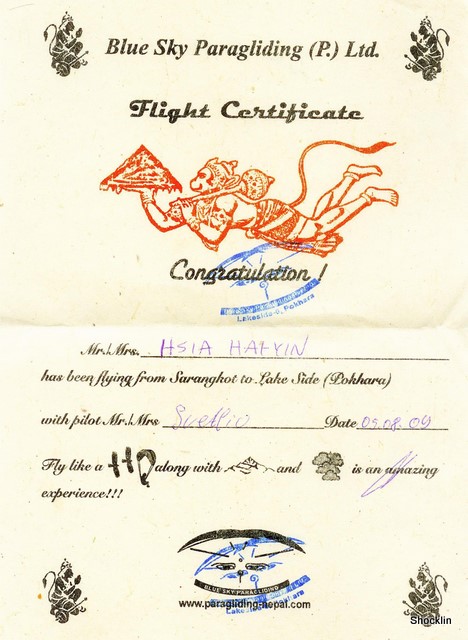 Blue Sky Paragliding (P.) Ltd.
Flight Certificate
Congratulation !
Lakeside-6, Pokhara
Mr./Mrs. HSIA HAFYIN
has been flying from Sarangkot to Lake Side (Pokhara)
with pilot Mr./Mrs Svetlio Date 09.08.09
Fly like a along with and is an amazing
experience!!!
BLUE SKY PARAGLIDING
www.paragliding-nepal.com
Shocklin